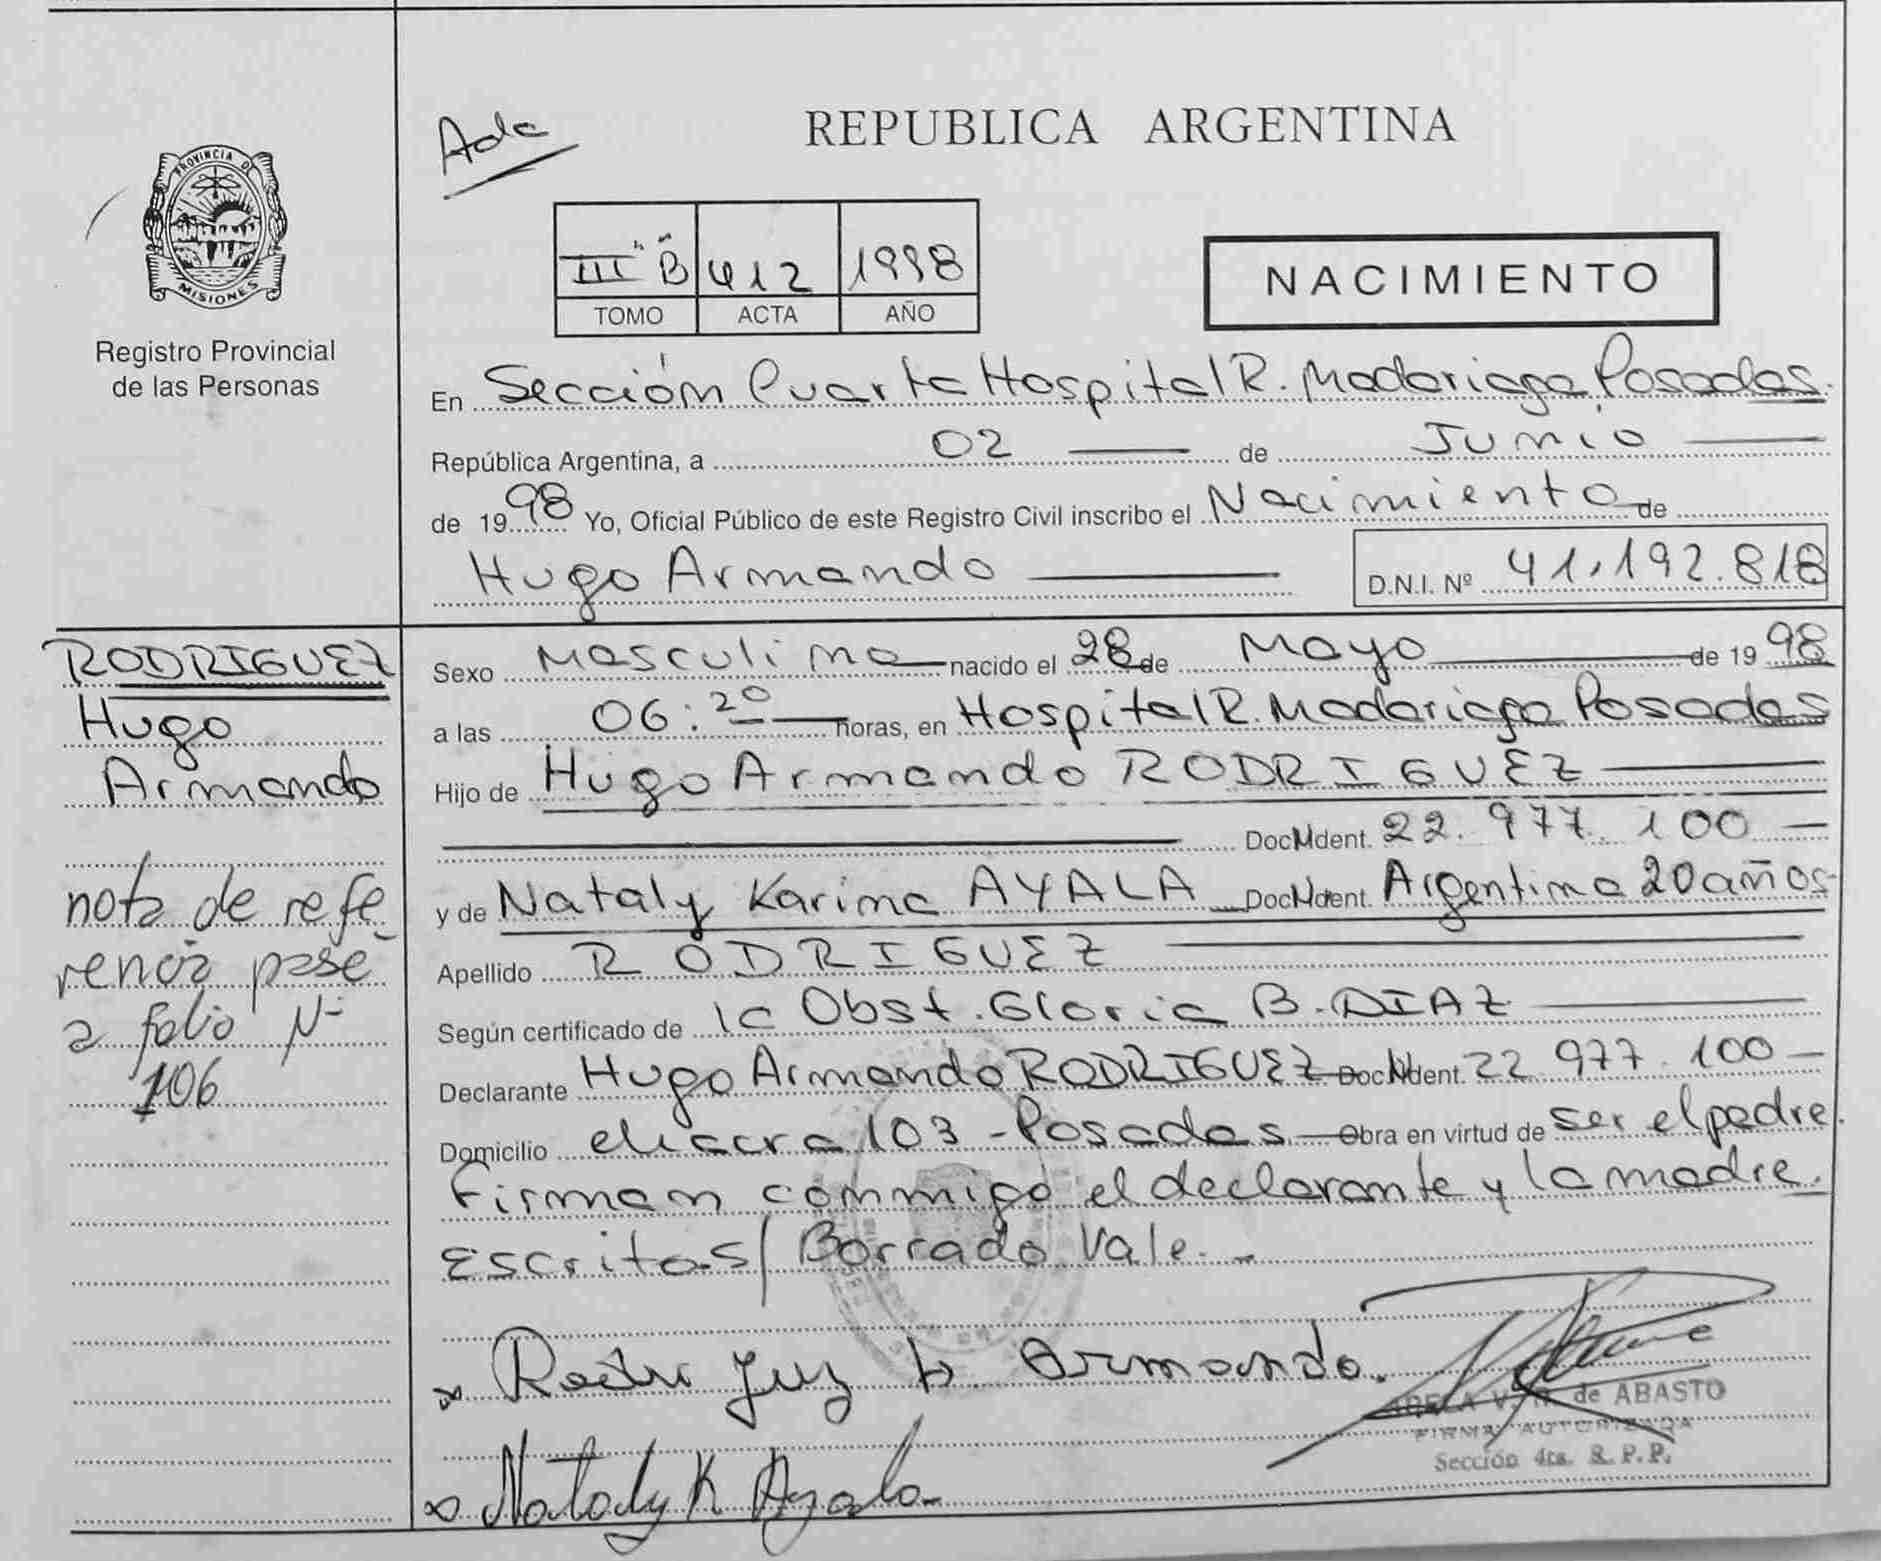 REPUBLICA ARGENTINA
PROVINCIA DE
MISIONES
Registro Provincial
de las Personas
III "B" 412 1998
TOMO ACTA AÑO
NACIMIENTO
En Sección Cuarta Hospital R. Madariaga Posadas.
República Argentina, a 02 de Junio
de 1998 Yo, Oficial Público de este Registro Civil inscribo el Nacimiento de
Hugo Armando D.N.I. Nº 41.192.818
RODRIGUEZ
Hugo
Armando
nota de refe
rencia pase
a folio Nº
106
Sexo Masculino nacido el 28 de Mayo de 1998
a las 06:20 horas, en Hospital R. Madariaga Posadas
Hijo de Hugo Armando RODRIGUEZ
Doc. Ident. 22.977.100
y de Nataly Karina AYALA Doc. Ident. Argentina 20 años
Apellido RODRIGUEZ
Según certificado de la Obst. Gloria B. DIAZ
Declarante Hugo Armando RODRIGUEZ Doc. Ident. 22.977.100
Domicilio chacra 103 - Posadas Obra en virtud de ser el padre.
Firman conmigo el declarante y la madre.
Escritas/ Borrado Vale.-
Armando.
de ABASTO
FIRMA AUTORIZADA
Sección 4ta. R. P. P.
Nataly K Ayala